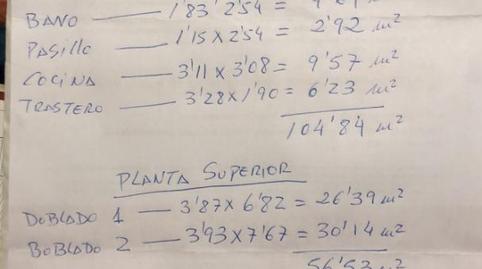 BAÑO — 1'83 2'54 =
PASillo — 1'15 x 2'54 = 2'92 m²
COCINA — 3'11 x 3'08 = 9'57 m²
TRASTERO — 3'28 x 1'90 = 6'23 m²
104'84 m²
PLANTA SUPERIOR
DOBLADO 1 — 3'87 x 6'82 = 26'39 m²
BOBLADO 2 — 3'93 x 7'67 = 30'14 m²
56'53 m²